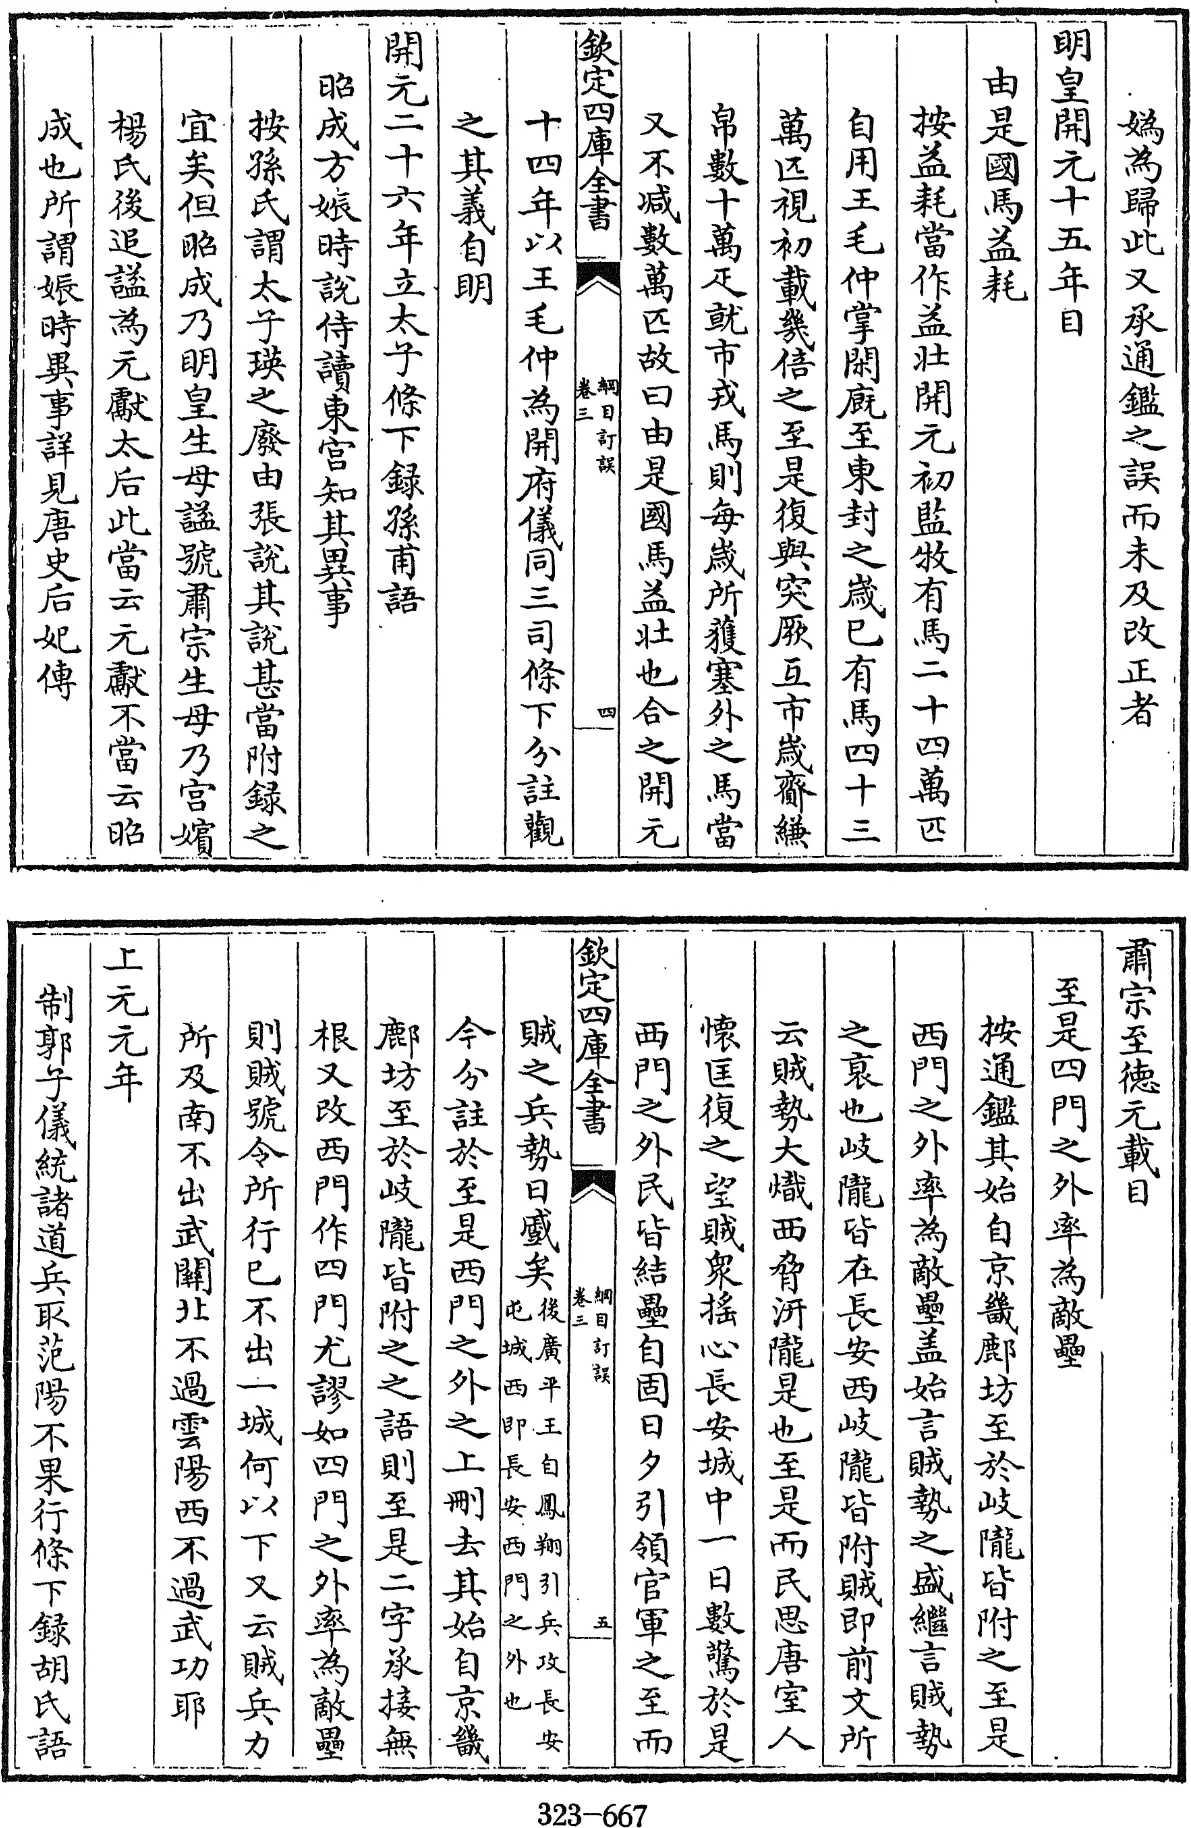 嬀為歸此又承通鑑之誤而未及改正者
明皇開元十五年目
由是國馬益耗
按益耗當作益壯開元初監牧有馬二十四萬匹
自用王毛仲掌閑廐至東封之歲已有馬四十三
萬匹視初載幾倍之至是復與突厥互市歲齎縑
帛數十萬疋就市戎馬則每歲所獲塞外之馬當
又不減數萬匹故曰由是國馬益壯也合之開元
欽定四庫全書
綱目訂誤
卷三
四
十四年以王毛仲為開府儀同三司條下分註觀
之其義自明
開元二十六年立太子條下錄孫甫語
昭成方娠時說侍讀東宮知其異事
按孫氏謂太子瑛之廢由張說其說甚當附錄之
宜矣但昭成乃明皇生母諡號肅宗生母乃宮嬪
楊氏後追諡為元獻太后此當云元獻不當云昭
成也所謂娠時異事詳見唐史后妃傳
肅宗至德元載目
至是四門之外率為敵壘
按通鑑其始自京畿鄜坊至於岐隴皆附之至是
西門之外率為敵壘盖始言賊勢之盛繼言賊勢
之衰也岐隴皆在長安西岐隴皆附賊即前文所
云賊勢大熾西脅汧隴是也至是而民思唐室人
懷匡復之望賊衆搖心長安城中一日數驚於是
西門之外民皆結壘自固日夕引領官軍之至而
欽定四庫全書
綱目訂誤
卷三
五
賊之兵勢日蹙矣後廣平王自鳳翔引兵攻長安
屯城西即長安西門之外也
今分註於至是西門之外之上刪去其始自京畿
鄜坊至於岐隴皆附之之語則至是二字承接無
根又改西門作四門尤謬如四門之外率為敵壘
則賊號令所行已不出一城何以下又云賊兵力
所及南不出武關北不過雲陽西不過武功耶
上元元年
制郭子儀統諸道兵取范陽不果行條下錄胡氏語
323-667